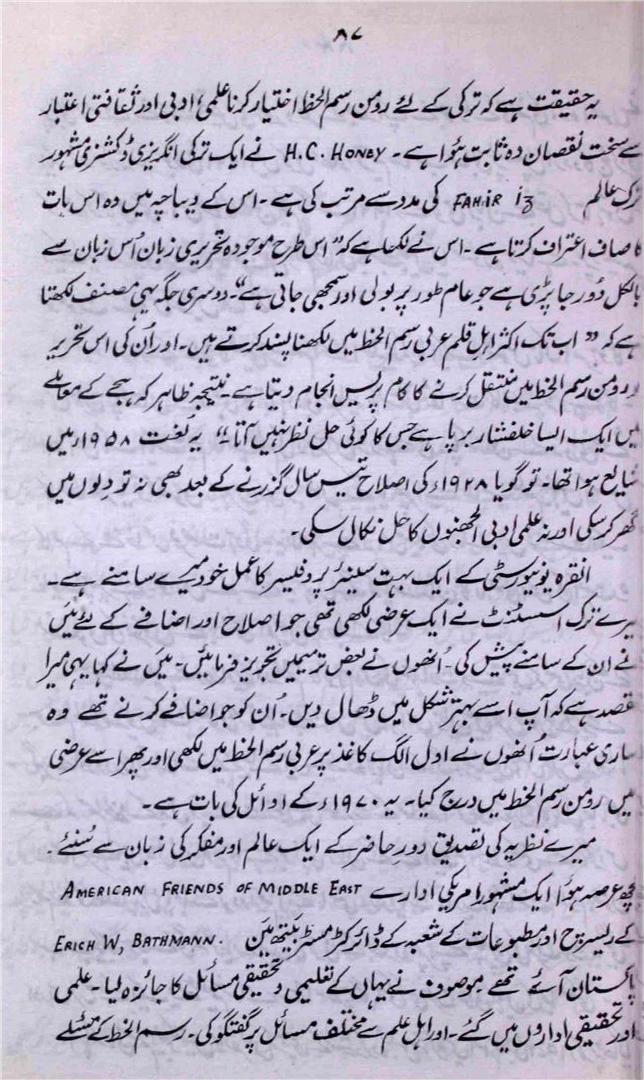 ۸۷
یہ حقیقت ہے کہ ترکی کے لئے رومن رسم الخط اختیار کرنا علمی ادبی اور ثقافتی اعتبار
سے سخت نقصان دہ ثابت ہوٗا ہے۔ H.C. HONEY نے ایک ترکی انگریزی ڈکشنری مشہور
ترک عالم FAHIR İZ کی مدد سے مرتب کی ہے۔ اس کے دیباچہ میں وہ اس بات
کا صاف اعتراف کرتا ہے۔ اس نے لکھا ہے کہ "اس طرح موجودہ تحریری زبان اُس زبان سے
بالکل دُور جا پڑی ہے جو عام طور پر بولی اور سمجھی جاتی ہے"۔ دوسری جگہ یہی مصنف لکھتا
ہے کہ "اب تک اکثر اہلِ قلم عربی رسم الخط میں لکھنا پسند کرتے ہیں۔ اور اُن کی اس تحریر
رومن رسم الخط میں منتقل کرنے کا کام پریس انجام دیتا ہے۔ نتیجہ ظاہر کہ ہجے کے معاملے
میں ایک ایسا خلفشار برپا ہے جس کا کوئی حل نظر نہیں آتا"۔ یہ لُغت ۱۹۵۸ء میں
شایع ہوا تھا۔ تو گویا ۱۹۲۸ء کی اصلاح تیس سال گزرنے کے بعد بھی نہ تو دِلوں میں
گھر کر سکی اور نہ علمی ادبی الجھنوں کا حل نکال سکی۔
انقرہ یونیورسٹی کے ایک بہت سینئر پروفیسر کا عمل خود میرے سامنے ہے۔
میرے تُرک اسسٹنٹ نے ایک عرضی لکھی تھی جو اصلاح اور اضافے کے لئے میَں
نے ان کے سامنے پیش کی۔ اُنھوں نے بعض ترمیمیں تجویز فرمائیں۔ میَں نے کہا یہی میرا
مقصد ہے کہ آپ اسے بہتر شکل میں ڈھال دیں۔ اُن کو جو اضافے کرنے تھے وہ
ساری عبارت اُنھوں نے اول الگ کاغذ پر عربی رسم الخط میں لکھی اور پھر اسے عرضی
میں رومن رسم الخط میں درج کیا۔ یہ ۱۹۷۰ء کے اوائل کی بات ہے۔
میرے نظریہ کی تصدیق دورِ حاضر کے ایک عالم اور مفکر کی زبان سے سُنئے۔
کچھ عرصہ ہوٗا ایک مشہور امریکی ادارے AMERICAN FRIENDS OF MIDDLE EAST
کے ریسرچ اور مطبوعات کے شعبہ کے ڈائرکٹر مسٹر بیَتھمیَن ERICH W, BATHMANN.
پاکستان آئے تھے موصوف نے یہاں کے تعلیمی و تحقیقی مسائل کا جائزہ لیا۔ علمی
اور تحقیقی اداروں میں گئے۔ اور اہلِ علم سے مختلف مسائل پر گفتگو کی۔ رسم الخط کے مسئلے